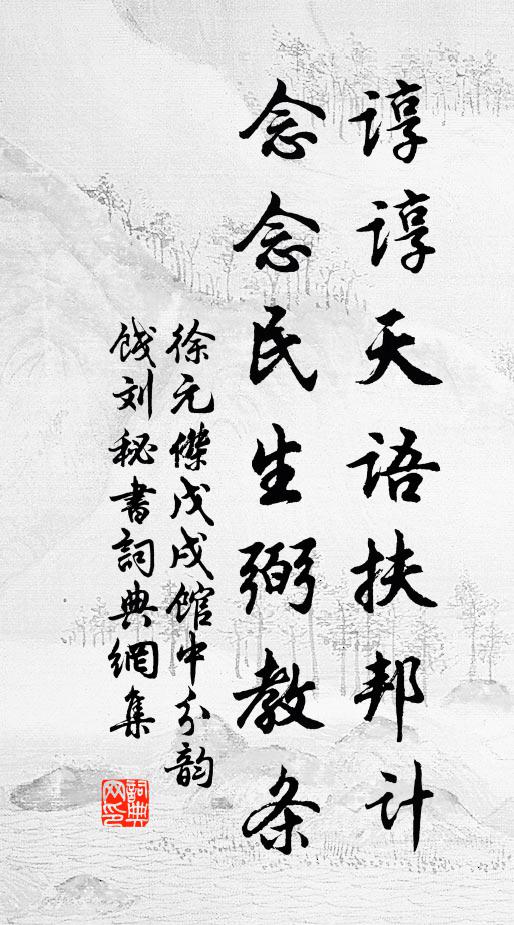 谆谆天语扶邦计
念念民生弼教条
徐元傑戊戌馆中分韵
饯刘秘书詞典網集
詞典网印